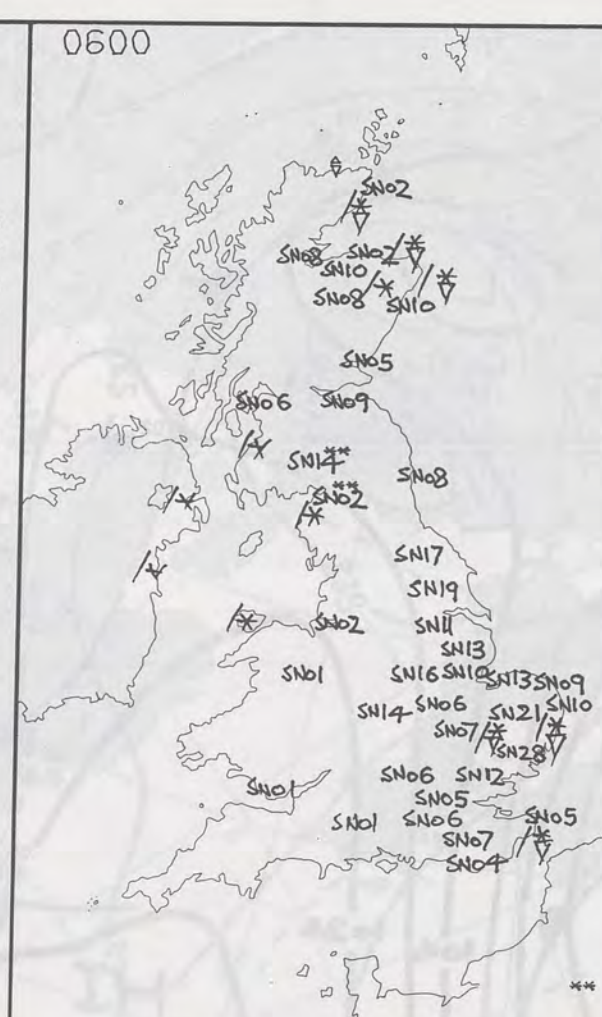 0600
SN02
SN08 SN02
SN10
SN08 SN10
SN05
SN06 SN09
SN14**
**
SN02
SN08
SN17
SN19
SN02 SN11
SN13
SN01 SN16 SN10 SN13 SN09
SN14 SN06 SN21 SN10
SN07
SN28
SN01 SN06 SN12
SN05
SN01 SN06 SN05
SN07
SN04
**